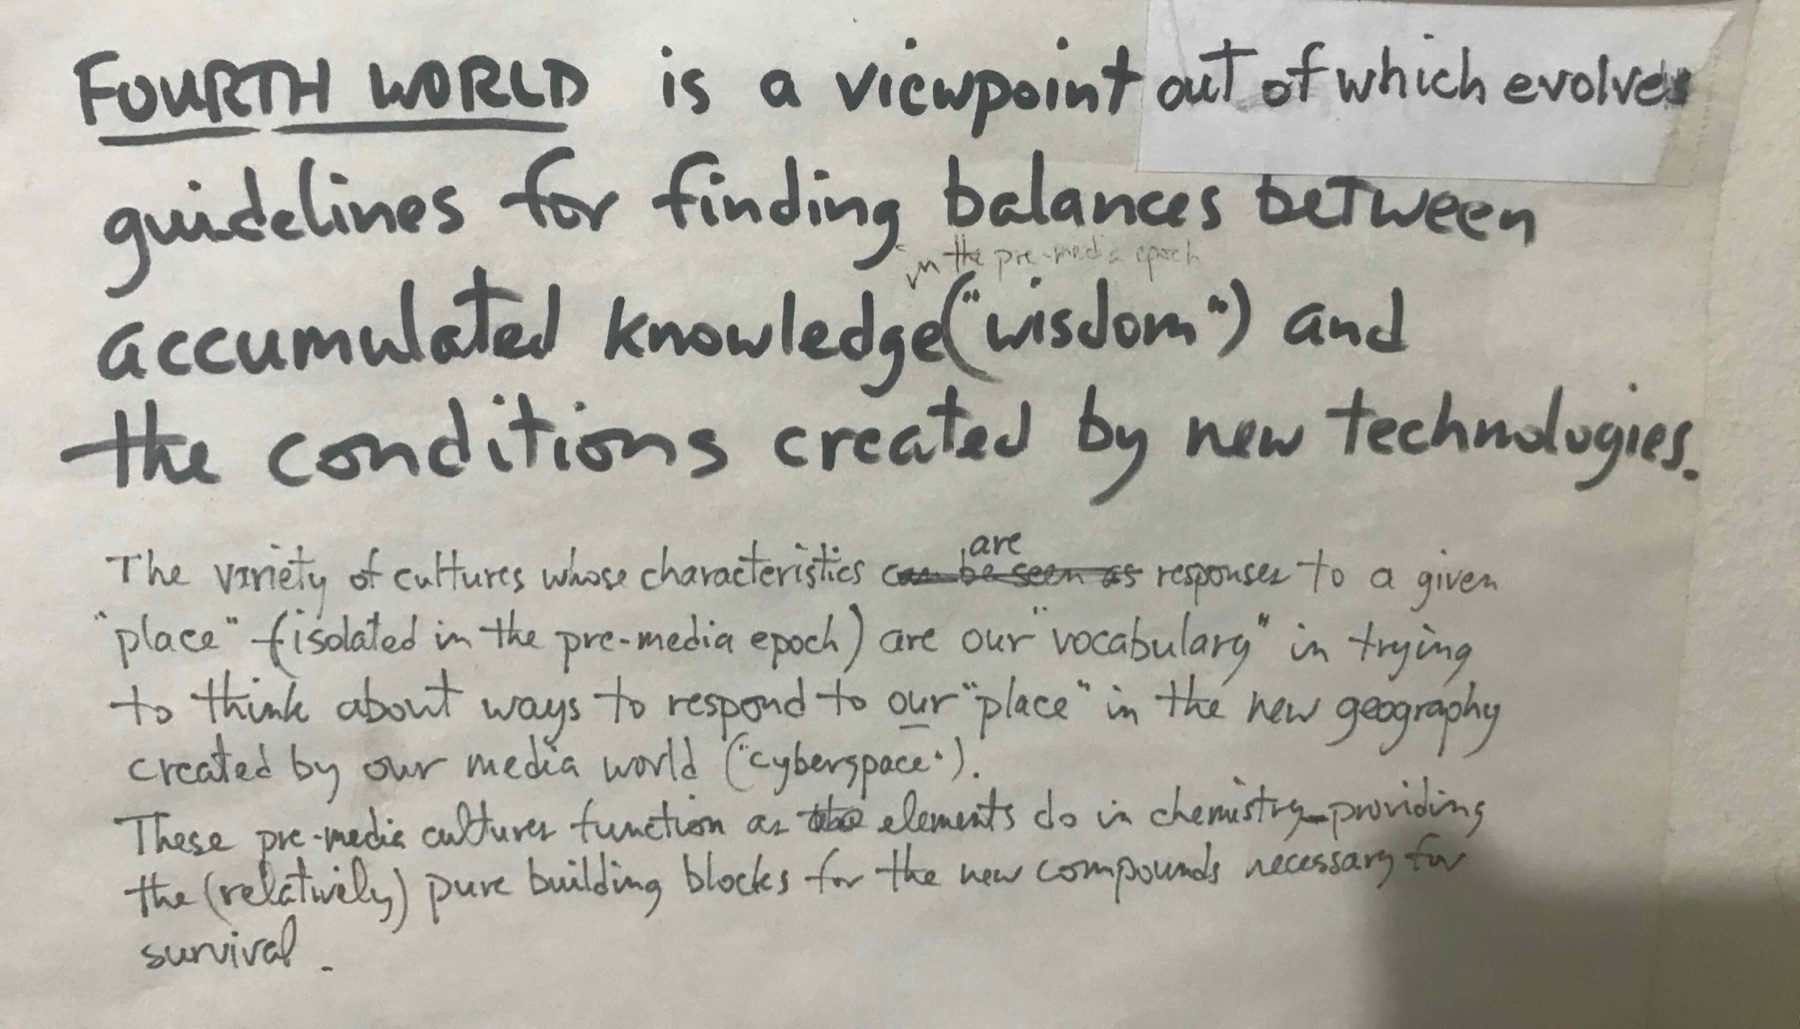 FOURTH WORLD is a viewpoint out of which evolves
guidelines for finding balances between
in the pre-media epoch
accumulated knowledge ("wisdom") and
the conditions created by new technologies.
are
The variety of cultures whose characteristics can be seen as responses to a given
"place" (isolated in the pre-media epoch) are our "vocabulary" in trying
to think about ways to respond to our "place" in the new geography
created by our media world ("cyberspace").
These pre-media cultures function as the elements do in chemistry—providing
the (relatively) pure building blocks for the new compounds necessary for
survival.